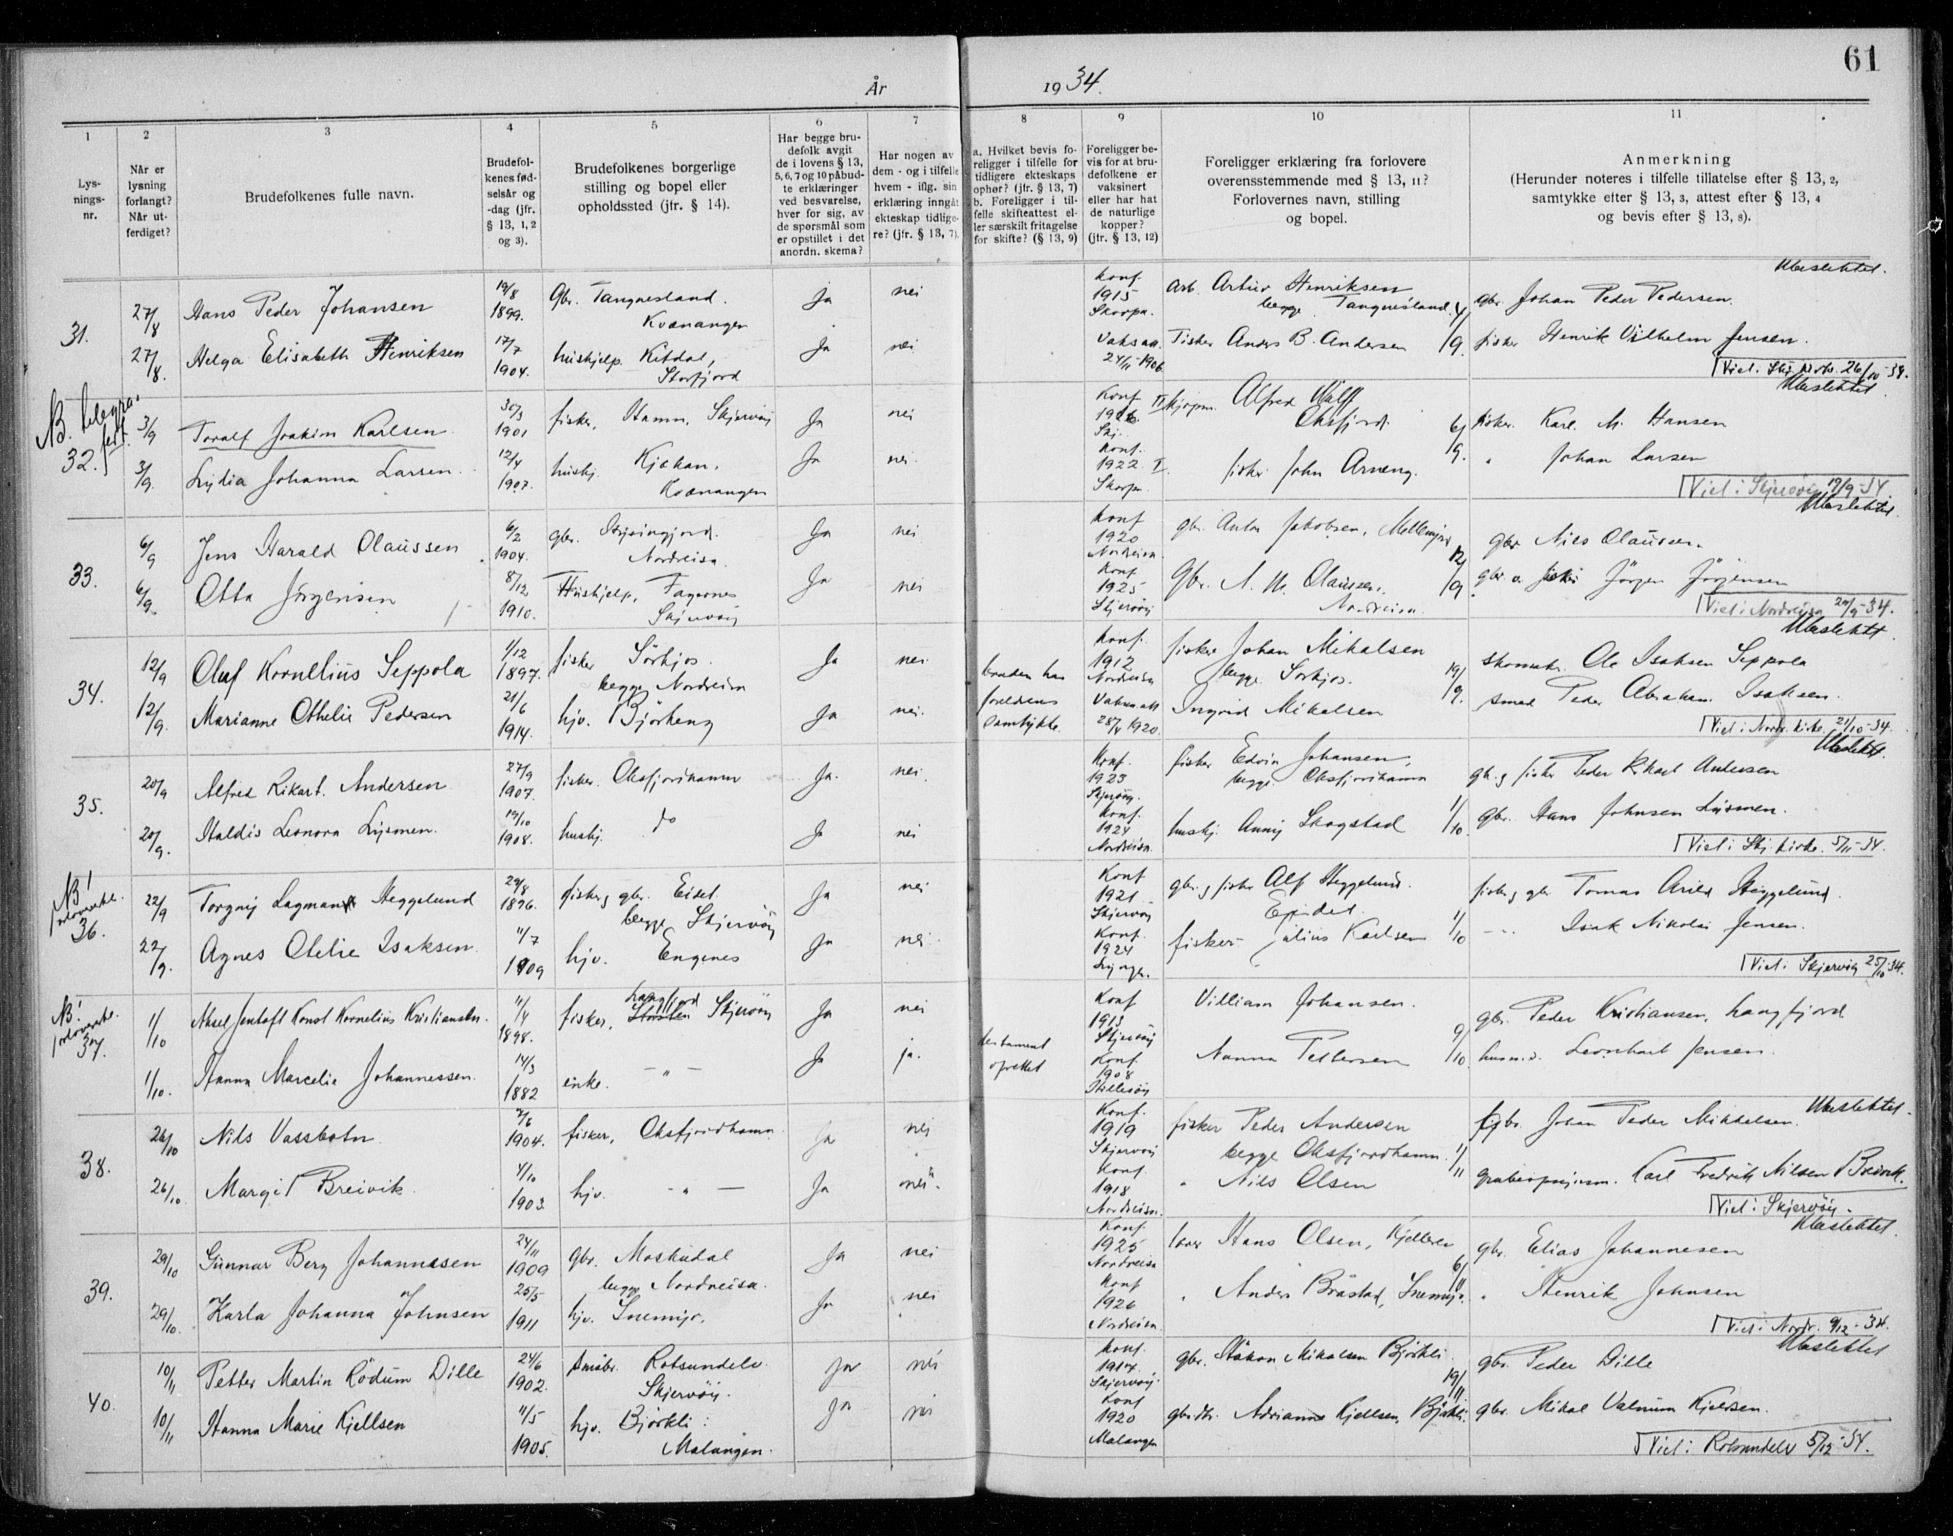 61
År 1934.
1 2 3 4 5 6 7 8 9 10 11
Lys-
nings-
nr.
Når er
lysning
forlangt?
Når ut-
ferdiget?
Brudefolkenes fulle navn.
Brudefol-
kenes fød-
selsår og
-dag (jfr.
§ 13, 1, 2
og 3).
Brudefolkenes borgerlige
stilling og bopel eller
opholdssted (jfr. § 14).
Har begge bru-
defolk avgit
de i lovens § 13,
5, 6, 7 og 10 påbud-
te erklæringer
ved besvarelse,
hver for sig, av
de spørsmål som
er opstillet i det
anordn. skema?
Har nogen av
dem - og i tilfelle
hvem - iflg. sin
erklæring inngåt
ekteskap tidlige-
re? (jfr. § 13, 7).
a. Hvilket bevis fo-
religger i tilfelle for
tidligere ekteskaps
ophør? (jfr. § 13, 7)
b. Foreligger i til-
felle skifteattest el-
ler særskilt fritagelse
for skifte? (§ 13, 9)
Foreligger be-
vis for at bru-
defolkene er
vaksinert
eller har hat
de naturlige
kopper?
(jfr. § 13, 12)
Foreligger erklæring fra forlovere
overensstemmende med § 13, 11?
Forlovernes navn, stilling
og bopel.
Anmerkning
(Herunder noteres i tilfelle tillatelse efter § 13, 2,
samtykke efter § 13, 3, attest efter § 13, 4
og bevis efter § 13, 8).
Ubeslektet.
31.
27/8 Hans Peder Johansen 19/8 1899. Gbr. Tangnesland. Kvænangen Ja nei Konf. 1915 Skorpa. Arb. Artur Henriksen begge Tangnesland. 4/9. gbr Johan Peder Pedersen.
27/8. Helga Elisabeth Henriksen 17/7 1904. hushjelp. Kitdal, Storfjord Ja nei Vaksatt. 24/11-1906 Fisker Anders B. Andersen fisker Henrik Vilhelm Jensen.
Viet i Skj. kirke 26/10-34.
Ubeslektet
32.
3/9 Toralf Joakim Karlsen 30/3 1901 fisker, Hamn, Skjervöy Ja nei Konf 1916 Skj. Alfred Wulff Oksfjord. 6/9. fisker. Karl M. Hansen
3/9. Lydia Johanna Larsen 12/4 1907. hushj. Kjækan, Kvænangen Ja nei. Konf. 1922 Skorpa. fisker John Arneng. " Johan Larsen
Viet i Skjervöy 19/9-34
Ubeslektet.
33.
6/9 Jens Harald Olaussen 6/2 1904. gbr. Nordreisa. Ja nei Konf 1920 Nordreisa gbr. Anton Jakobsen, 12/9 gbr Nils Olaussen.
6/9. Otta Jørgensen 8/12 1910. Hushjelp, Tagernes Skjervöy Ja nei Konf. 1925 Skjervöy Gbr. A. M. Olaussen. Nordreisa. gbr. o. fisker Jörgen Jörgensen
Viet i Nordreisa 24/9-34.
Ubeslektet.
34.
12/9 Oluf Kornelius Seppola 1/12 1897. fisker Sörkjos. begge Nordreisa Ja nei bruden har foreldrenes samtykke. Konf. 1912 Nordreisa fisker Johan Mikalsen begge Sörkjos. 19/9. skomak. Ole Isaksen Seppola
12/9. Marianne Othelie Pedersen 21/6 1914. hjv. Björkeng Ja nei. Vaksatt 28/4 1920. Ingrid Mikalsen smed Peder Abraham Isaksen.
Viet i Nordr. kirke 21/10-34.
Ubeslektet.
35.
20/9 Alfred Rikart. Andersen 27/9 1907. fisker. Oksfjordhamn Ja. nei. Konf. 1923 Skjervöy. fisker Edvin Johansen, begge Oksfjordhamn 1/10. gb. g fisker Peder Rikart Andersen
20/9. Haldis Leonora Lysmen. 19/10 1908. hushj. do Ja nei Konf. 1924 Nordreisa. hushj. Anny Skogstad gbr. Hans Johnsen Lysmen.
Viet i Skj. kirke. 5/11-34.
NB!
36.
22/9 Torgny Lagmann Heggelund 29/8 1896. fisker g gbr. Eidet. begge Skjervöy Ja nei Konf 1921 Skjervöy gbr. g fisker Alf Heggelund. Eidet. 1/10 fisker g gbr Tomas Arild Heggelund.
22/9. Agnes Otelie Isaksen. 11/7 1909 hjv. Engenes Ja nei Konf. 1924 Lyngen. fisker- Julius Karlsen - " - Isak Nikolai Jensen.
Viet i Skjervöy 25/10-34.
NB!
37.
1/10 Aksel Jentoft Konst Kornelius Kristiansen. 11/4 1898. fisker, Langfjord Skjervöy Ja nei Konf 1913 Skjervöy William Johansen. 9/10 gbr. Peder Kristiansen, Langfjord
1/10. Hanna Marcelie Johannessen. 14/3 1882 enke. - " - Ja ja. testament oprettet Konf. 1908 Nanna Pettersen Leonhart Jensen.
Ubeslektet.
38.
26/10 Nils Vassbotn 7/6 1904. fisker, Oksfjordhamn Ja nei Konf. 1919 Skjervöy fisker Peder Andersen begge Oksfjordhamn. 1/11 gbr. Johan Peder Mikkelsen.
26/10. Margit Breivik. 4/10 1903. hjv. - " - Ja nei. Konf. 1918 Nordreisa. " Nils Olsen Karl Fredrik Nilsen Breivik.
Viet i Skjervöy.
Ubeslektet.
39.
29/10 Gunnar Berg Johannesen 24/11 1909 gbr. Moskodal begge Nordreisa. Ja nei Konf. 1925 Nordreisa Hans Olsen, Kjelleren 6/11 gbr. Elias Johannesen
29/10. Karla Johanna Johnsen 25/5 1911 hjv. Snemyr. Ja nei Konf 1926 Nordreisa. " Anders Bråstad, Snemyr. " Henrik Johnsen
Viet i Nordr. 9/12-34.
Ubeslektet
40.
10/11 Petter Martin Rödum Dille 24/6 1902. småbr. Rotsundelv Skjervöy. ja nei Konf. 1917. Skjervöy. gbr. Håkon Mikalsen Björkli 19/11 gbr. Peder Dille
10/11 Hanna Marie Kjellsen 11/5 1905. hjv. Björkli. Malangen. ja nei Konf 1920 Malangen Adrianne Kjellsen, Björkli. gbr. Mikal Kjelsen.
Viet i Rotsundelv 5/12-34.